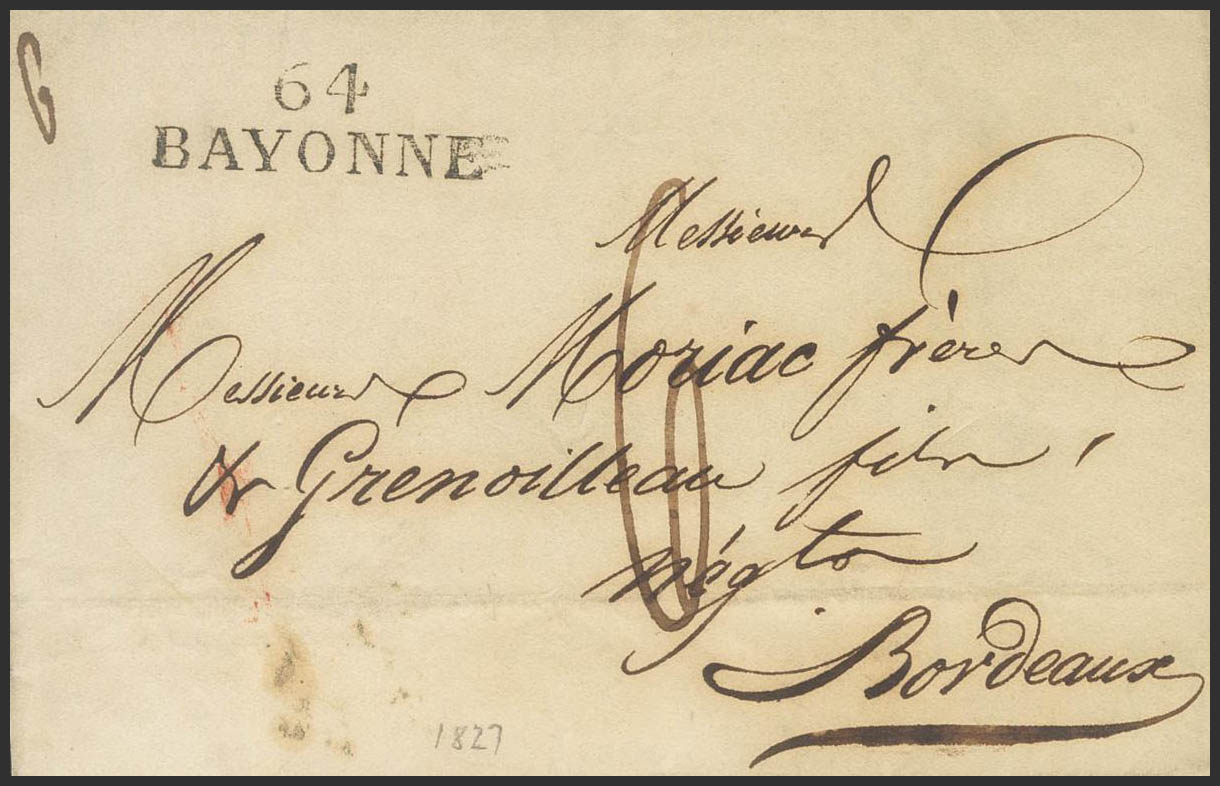 6
64
BAYONNE
Messieurs
Messieurs Moriac frères
& Grenoilleau fils,
négts
Bordeaux
6
1827